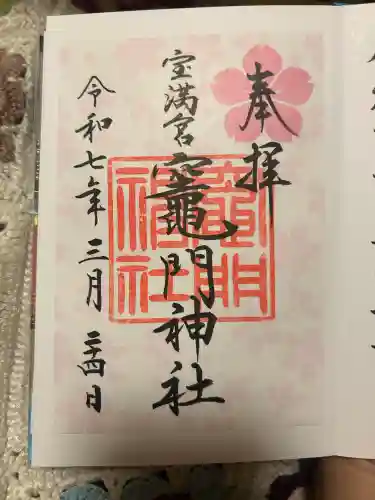 奉拝
宝満宮
竈門神社
竈門神社
令和七年三月二十四日